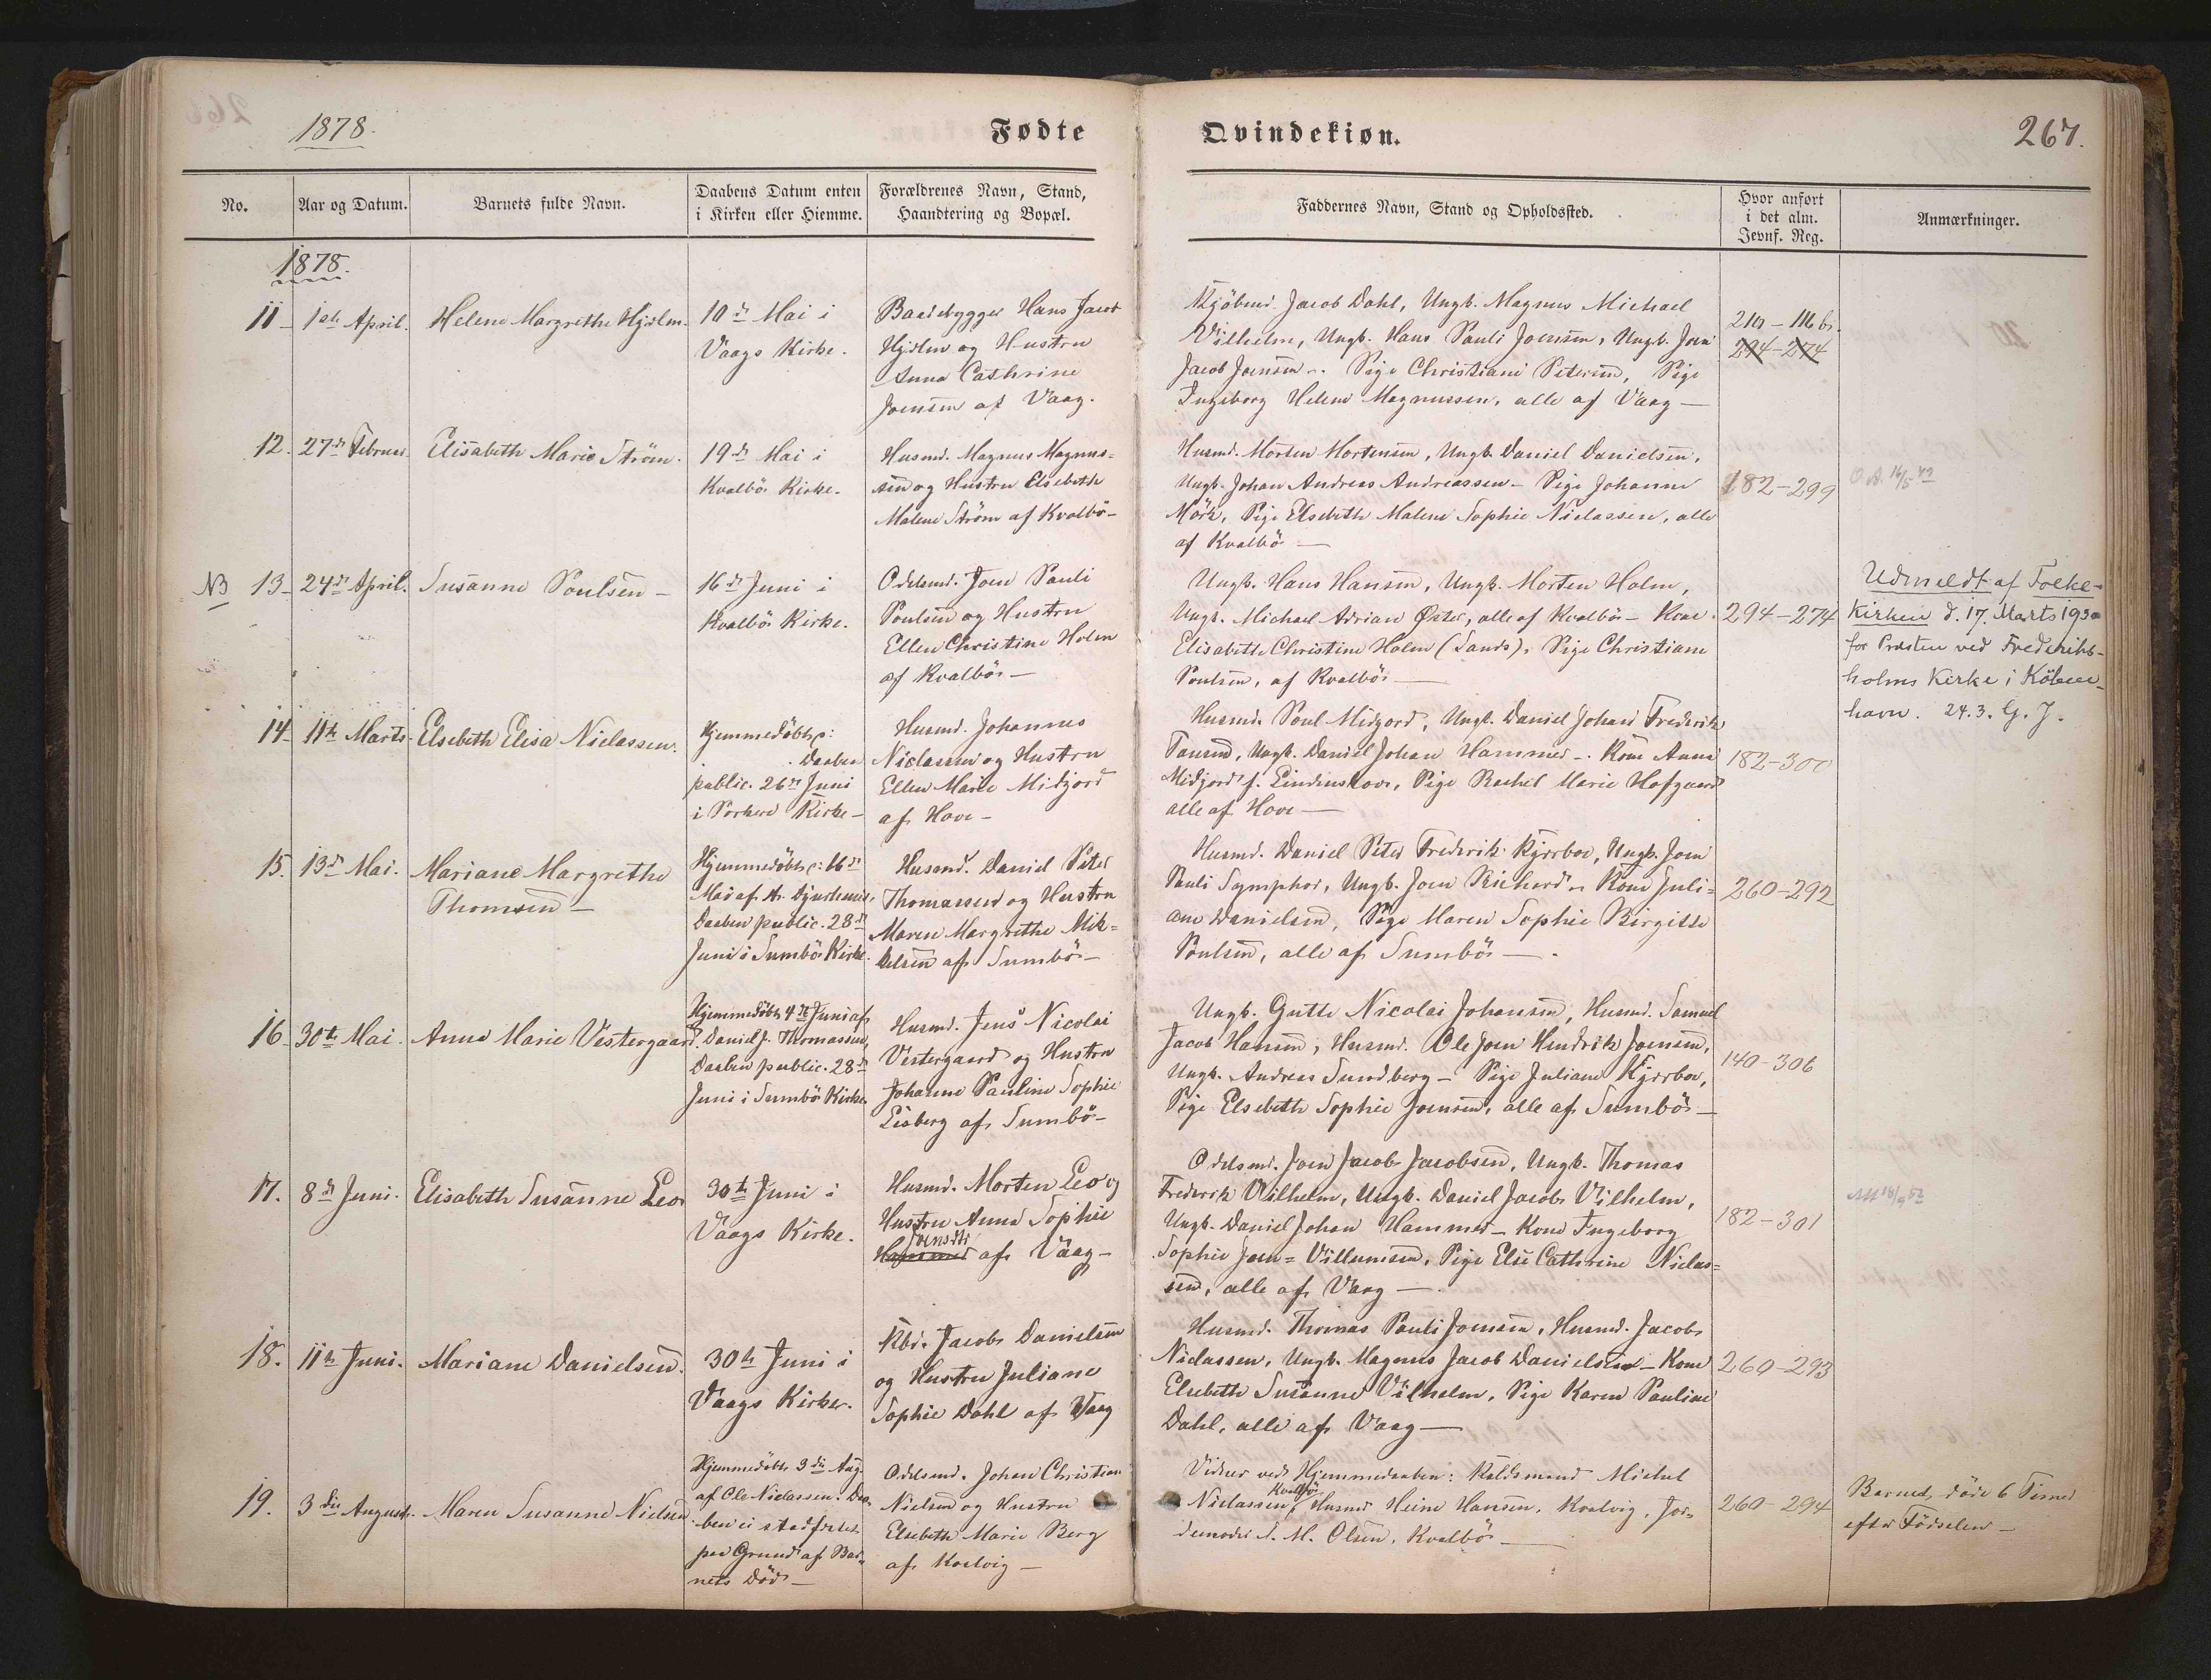 1878.
Fødte
Qvindekiøn.
267.
No.
Aar og Datum.
Barnets fulde Navn.
Daabens Datum enten
i Kirken eller Hiemme.
Forældrenes Navn, Stand,
Haandtering og Bopæl.
Faddernes Navn, Stand og Opholdssted.
Hvor anført
i det alm.
Jevnf. Reg.
Anmærkninger.
1878.
11 1ste April. Helene Margrethe Hjelm.
10de Mai i
Vaags Kirke.
Baadebygger Hans Jacob
Hjelm og Hustru
Anna Cathrine
Joensen af Vaag.
Kjøbmd. Jacob Dahl, Ungk. Magnus Michael
Vilhelm, Ungk. Hans Pauli Joensen, Ungk. Joen
Jacob Joensen -. Pige Christiane Petersen, Pige
Ingeborg Helene Magnussen, alle af Vaag —
294-274
12. 27de Februar. Elisabeth Marie Strøm.
19de Mai i
Kvalbø Kirke.
Husmd. Magnus Magnus=
sen og Hustru Elsebeth
Malene Strøm af Kvalbø-
Husmd. Morten Mortensen, Ungk. Daniel Danielsen,
Ungk. Johan Andreas Andreassen - Pige Johanne
Mörk, Pige Elsebeth Malene Sophie Niclassen, alle
af Kvalbø —
182-299
O.A. 14/5 42
NB 13- 24de April. Susanne Poulsen -
16de Juni i
Kvalbø Kirke.
Odelsmd. Joen Pauli
Poulsen og Hustru
Ellen Christine Holm
af Kvalbø. —
Ungk. Hans Hansen, Ungk. Morten Holm,
Ungk. Michael Adrian Øster, alle af Kvalbø - Kone
Elisabeth Christine Holm (Sands), Pige Christiane
Poulsen, af Kvalbø —
294-274
Udmeldt af Folke-
kirken d. 17. Marts 1930
for Præsten ved Frederiks-
holms Kirke i Köben-
havn. 24.3. G. J.
14. 11te Marts. Elsebeth Elisa Niclassen.
Hjemmedøbt
Daaben
public. 26de Juni
i Porkere Kirke-
Husmd. Johannes
Niclassen og Hustru
Ellen Marie Midjord
af Hove -
Husmd. Poul Midjord, Ungk. Daniel Johan Frederik
Tausen, Ungk. Daniel Johan Hammer -. Kone Anna
Midjord f. Lindenskov, Pige Rachel Marie Hofgaard
alle af Hove —
182-300
15. 13de Mai. Mariane Margrethe
Thomsen —
Hjemmedøbt 16de
Mai af
Daaben public. 28de
Juni i Sumbø Kirke.
Husmd. Daniel Peter
Thomassen og Hustru
Maren Margrethe Mik=
kelsen af Sumbø-
Husmd. Daniel Peter Frederik Kjærbo, Ungk. Joen
Pauli Symphor, Ungk. Joen Richard -. Kone Juli=
ane Danielsen, Pige Maren Sophie Birgitte
Poulsen, alle af Sumbø —.
260-292
16. 30te Mai. Anna Marie Vestergaard.
Hjemmedøbt 4de Juni af
Daniel J. Thomassen,
Daaben public. 28de
Juni i Sumbø Kirke.
Husmd. Jens Nicolai
Vestergaard og Hustru
Johanne Pauline Sophie
Lisberg af Sumbø-
Ungk. Gutte Nicolai Johansen, Husmd. Samuel
Jacob Hansen, Husmd. Ole Joen Hendrik Joensen,
Ungk. Andreas Sundberg - Pige Juliane Kjærbo,
Pige Elsebeth Sophie Joensen, alle af Sumbø —
140-306
17. 8de Juni. Elisabeth Susanne Leo
30te Juni i
Vaags Kirke.
Husmd. Morten Leo og
Hustru Anna Sophie
Hammer af Vaag -
Odelsmd. Joen Jacob Jacobsen, Ungk. Thomas
Frederik Vilhelm, Ungk. Daniel Jacob Vilhelm,
Ungk. Daniel Johan Hammer - Kone Ingeborg
Sophie Joen= Villumsen, Pige Else Cathrine Niclas=
sen, alle af Vaag —.
182-301
18. 11te Juni. Mariane Danielsen.
30te Juni i
Vaags Kirke.
Kbd. Jacob Danielsen
og Hustru Juliane
Sophie Dahl af Vaag
Husmd. Thomas Pauli Joensen, Husmd. Jacob
Niclassen, Ungk. Magnus Jacob Danielsen - Kone
Elsebeth Susanne Vilhelm, Pige Karen Pauline
Dahl, alle af Vaag —
260-293
19. 3die August. Maren Susanne Nielsen
Hjemmedøbt 3die Aug.
af Ole Niclassen. Daa-
ben ei stadfæstet
paa Grund af Bar-
nets Død —
Odelsmd. Johan Christian
Nielsen og Hustru
Elsebeth Marie Berg
af Kvalvig —
Vidner ved Hjemmedaaben: Michel
Niclassen, Kvalbø, Husmd. Heine Hansen, Kvalvig, Jor-
demoder S. M. Olsen, Kvalbø —
260-294
Barnet døde 6 Timer
efter Fødselen —